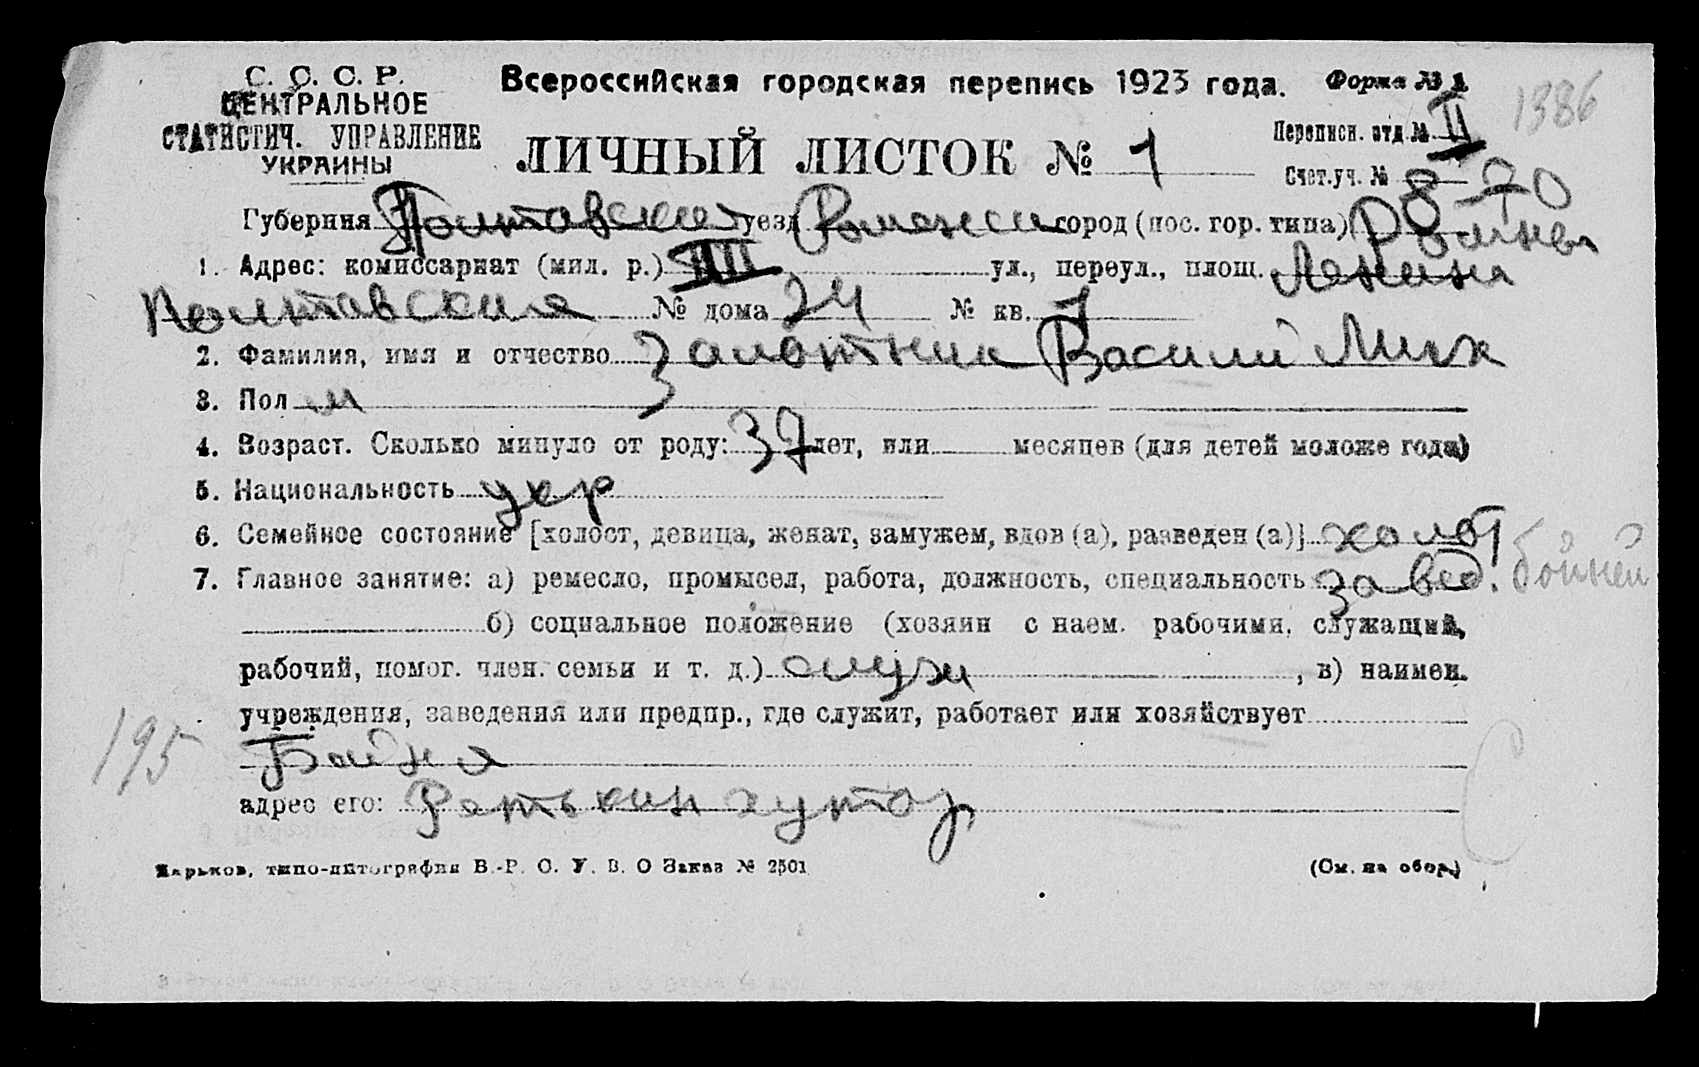 С. С. С. Р.
ЦЕНТРАЛЬНОЕ
СТАТИСТИЧ. УПРАВЛЕНИЕ
УКРАИНЫ
Всероссийская городская перепись 1923 года. Форма № 1
1386
ЛИЧНЫЙ ЛИСТОК № 1
Переписн. отд. № II
Счет.уч. № 8-20
Губерния Полтавская уезд Роменск город (пос. гор. типа) Ромны
1. Адрес: комиссариат (мил. р.) III ул., переул., площ. Ленина
Полтавская № дома 24 № кв. 1
2. Фамилия, имя и отчество Залотник Василий Мих
3. Пол м
4. Возраст. Сколько минуло от роду: 37 лет, или месяцев (для детей моложе года)
5. Национальность укр
6. Семейное состояние [холост, девица, женат, замужем, вдов (а), разведен (а)] холост
7. Главное занятие: а) ремесло, промысел, работа, должность, специальность завед. бойней
б) социальное положение (хозяин с наем. рабочими, служащий,
рабочий, помог. член. семьи и т. д.) служ , в) наимен.
учреждения, заведения или предпр., где служит, работает или хозяйствует
195
Бойня
адрес его: хутор
Харьков, типо-литография В.-Р. С. У. В. О Заказ № 2501
(См. на обор.)